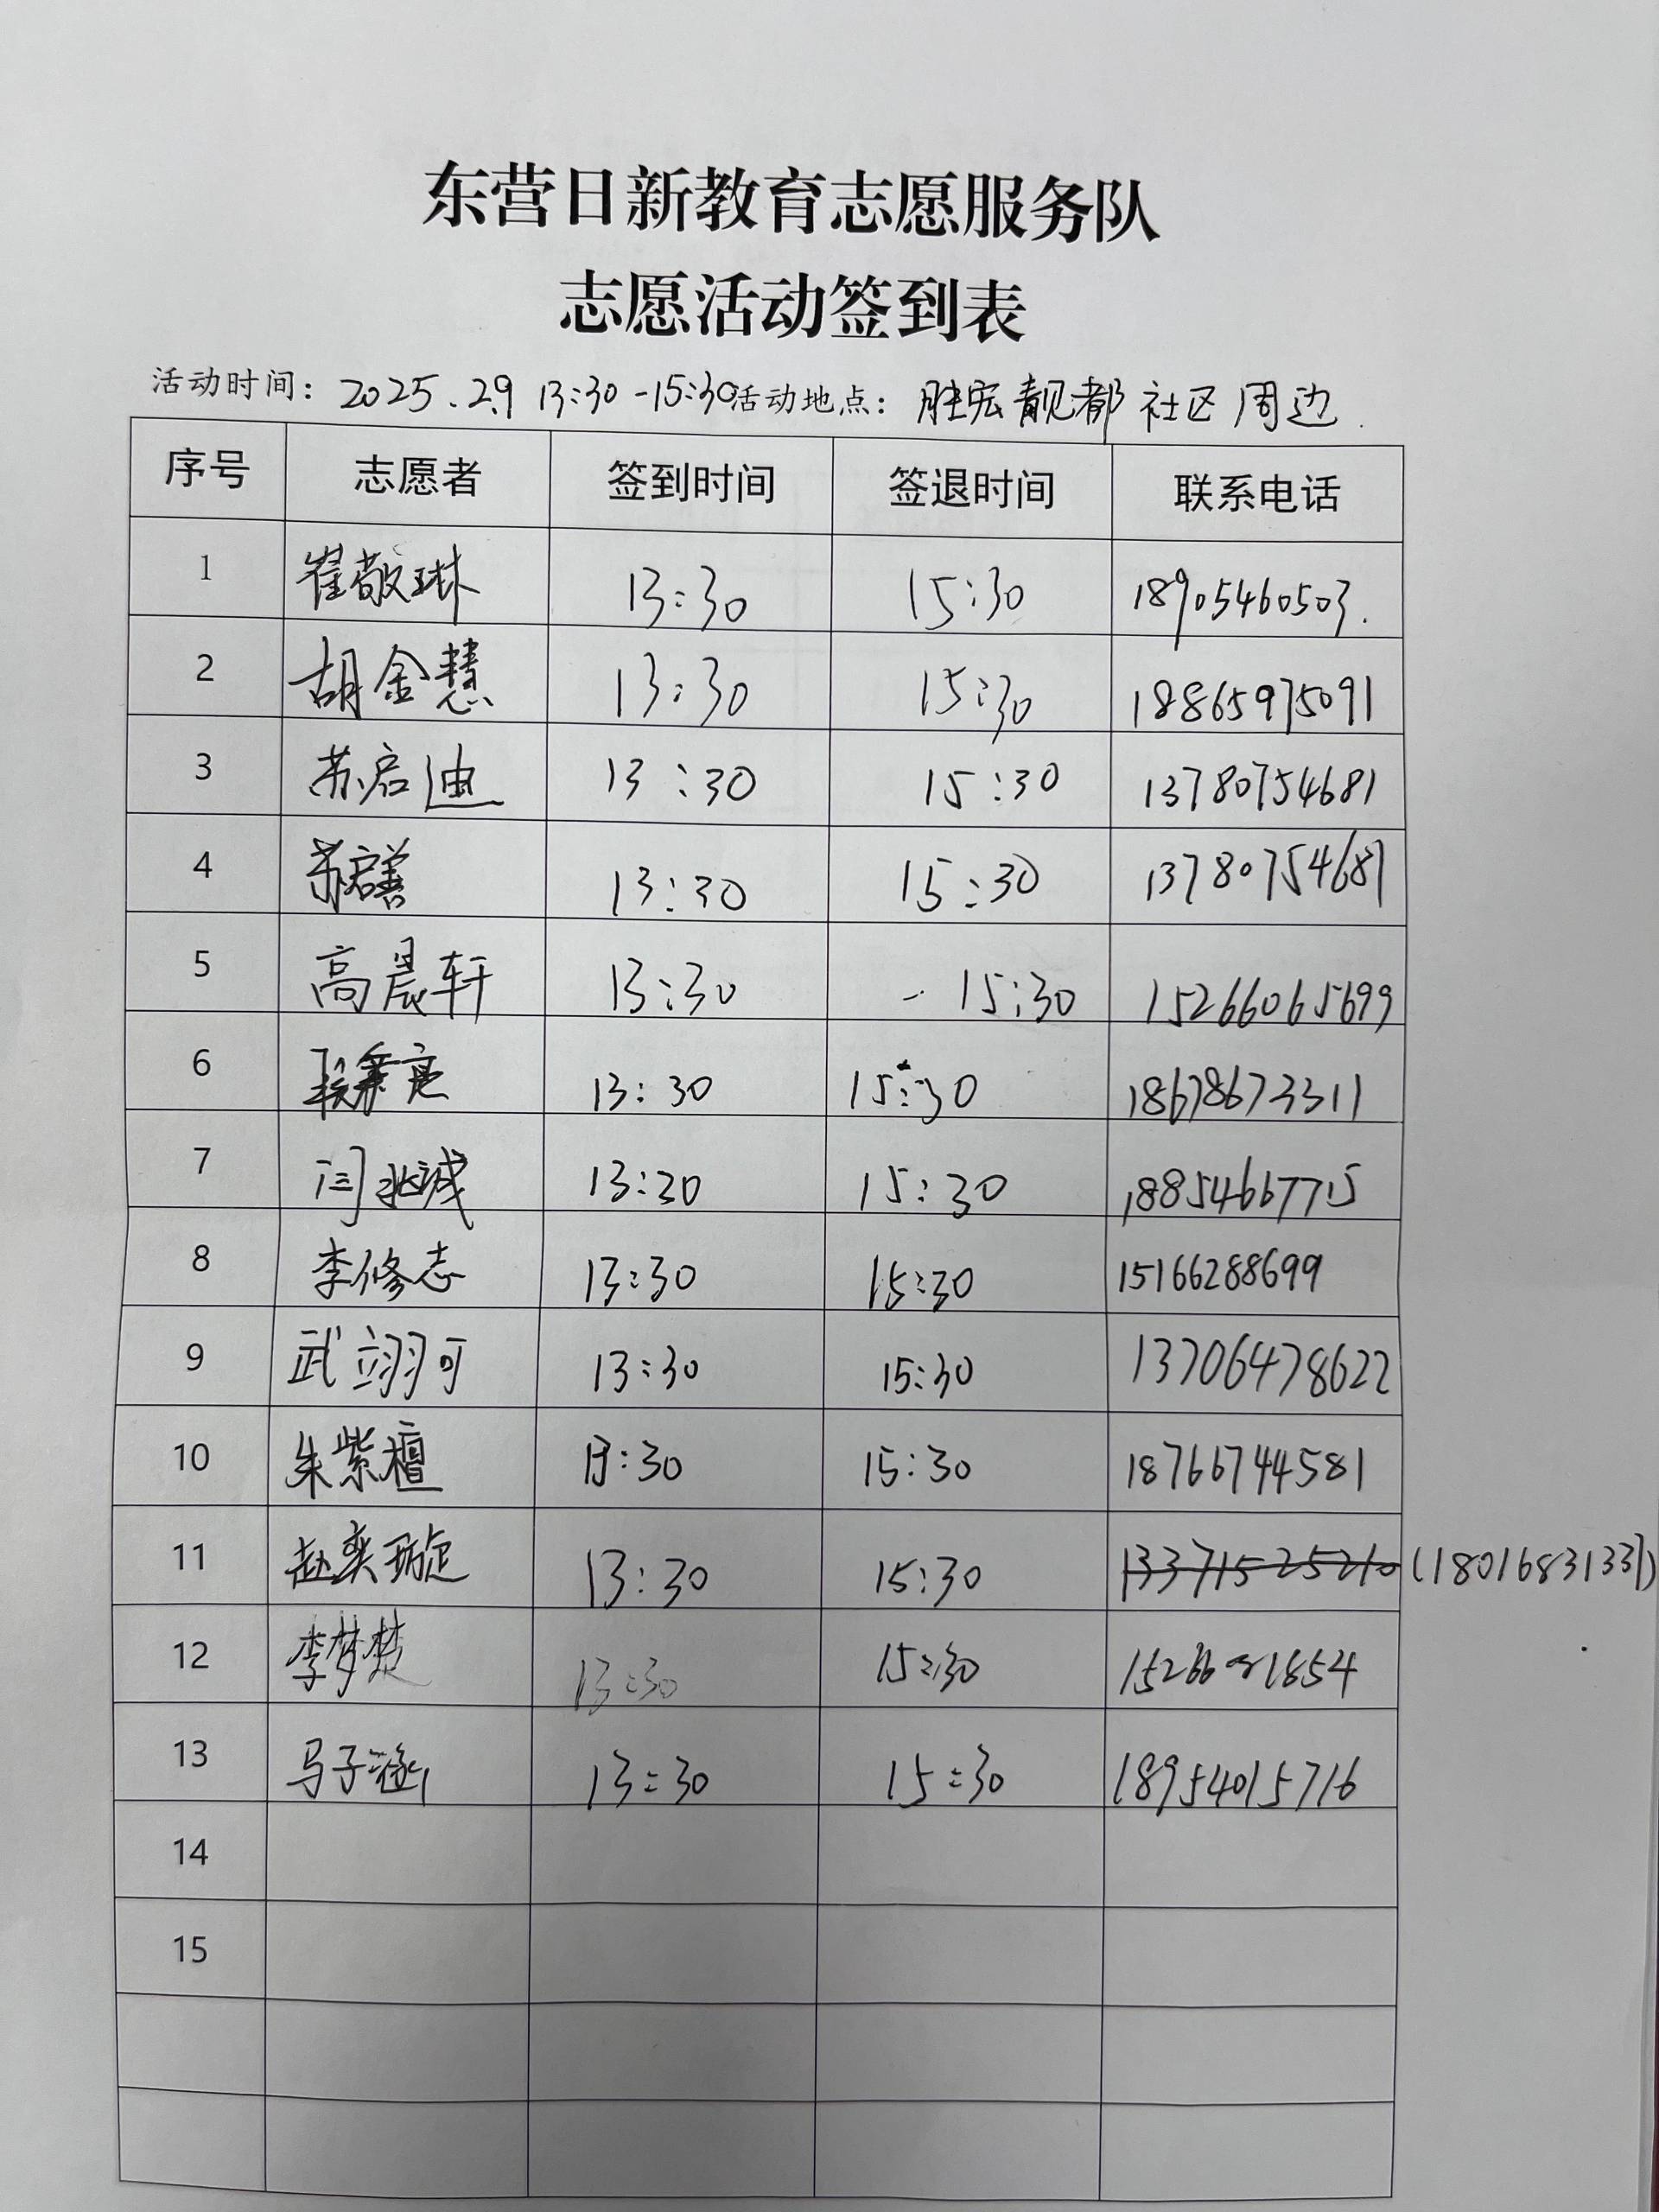 东营日新教育志愿服务队
志愿活动签到表
活动时间：2025.2.9 13:30-15:30 活动地点：胜宏靓都社区周边.
序号 志愿者 签到时间 签退时间 联系电话
1 崔敬琳 13:30 15:30 18905460503.
2 胡金慧 13:30 15:30 18865975091
3 苏启迪 13:30 15:30 13780754681
4 苏启善 13:30 15:30 13780754681
5 高晨轩 13:30 15:30 15266065699
6 13:30 15:30 18678673311
7 闫兆诚 13:30 15:30 18854667715
8 李修志 13:30 15:30 15166288699
9 武翊可 13:30 15:30 13706478622
10 朱紫檀 13:30 15:30 18766744581
11 赵奕璇 13:30 15:30 13371525210 (18016831331)
12 李梦楚 13:30 15:30
13 马子涵 13:30 15:30 18954015716
14
15